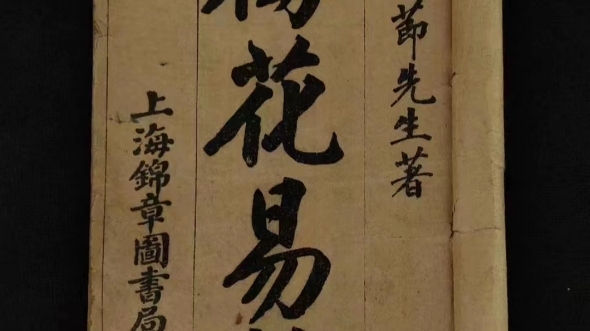 節先生著
梅花易
上海錦章圖書局